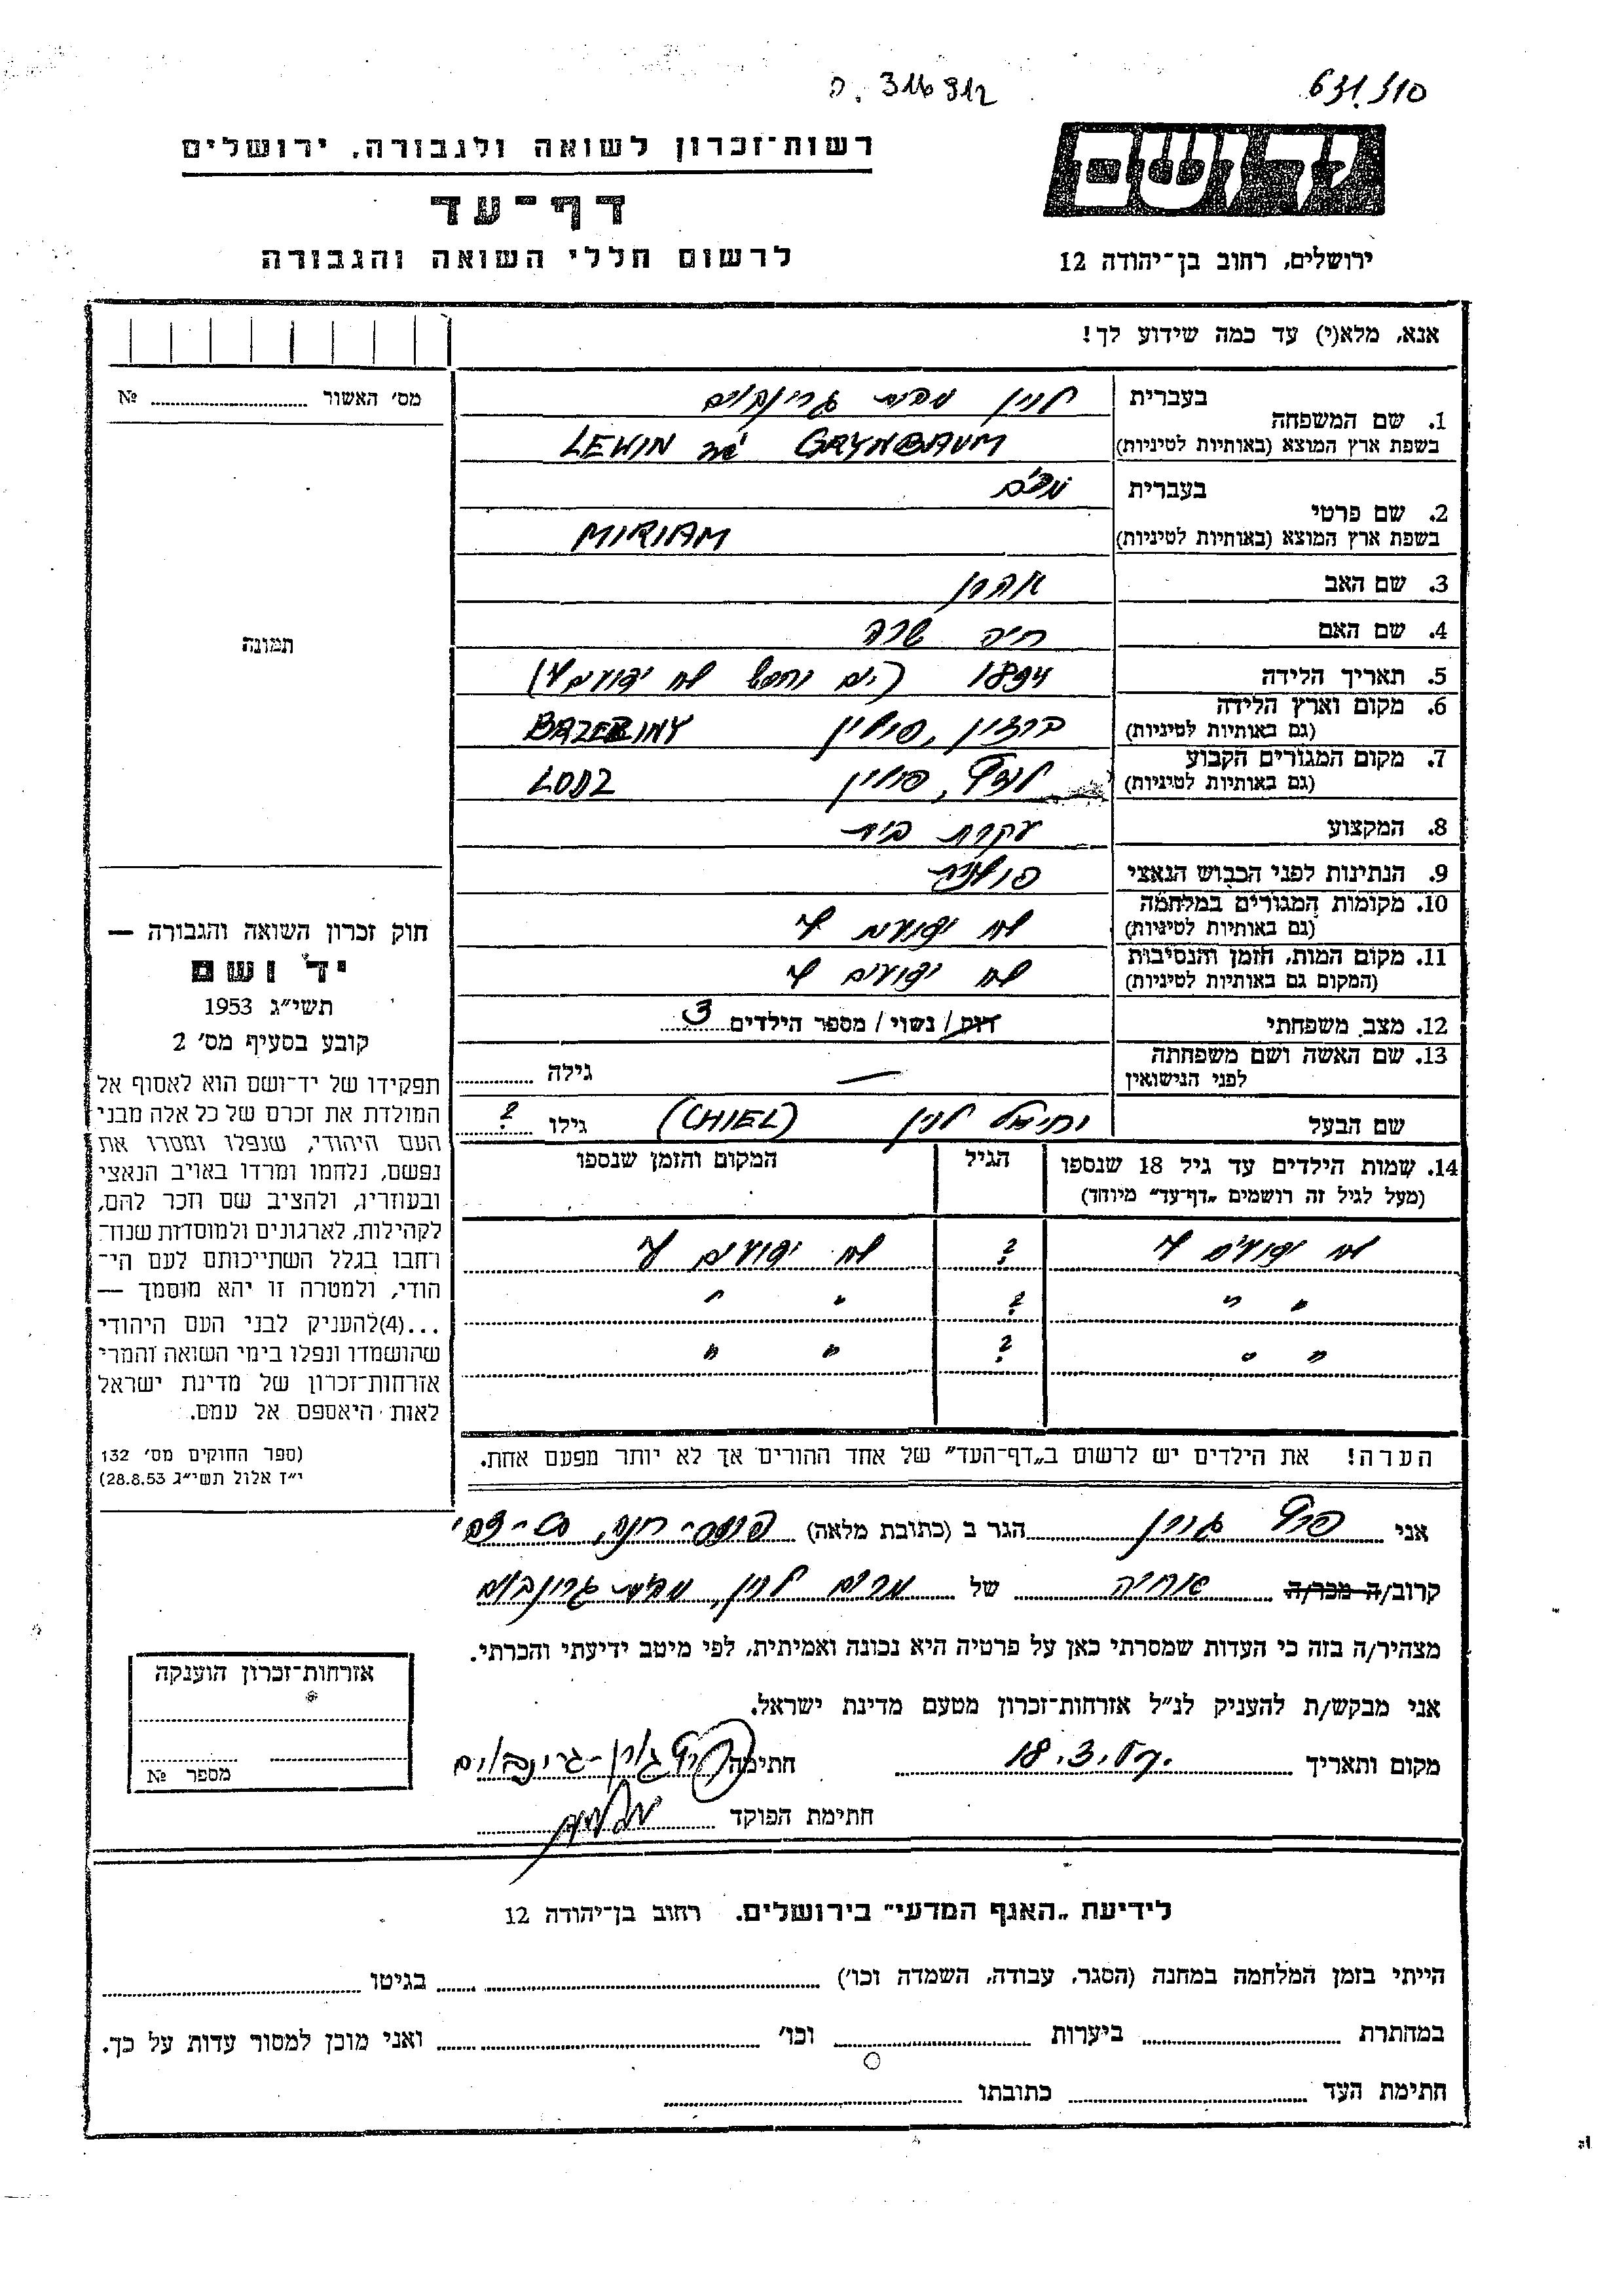 ה. 316912
631/310
רשות־זכרון לשואה ולגבורה, ירושלים
דף־עד
לרשום חללי השואה והגבורה
יד ושם
ירושלים, רחוב בן־יהודה 12
אנא, מלא(י) עד כמה שידוע לך!
מס׳ האשור № ........
תמונה
1. שם המשפחה בעברית לוין מבית גרינבוים
בשפת ארץ המוצא (באותיות לטיניות) GRYNBAUM מבית LEWIN
2. שם פרטי בעברית מרים
בשפת ארץ המוצא (באותיות לטיניות) MIRIAM
3. שם האב אהרן
4. שם האם חיה שרה
5. תאריך הלידה 1894 (יום וחודש לא ידועים לי)
6. מקום וארץ הלידה (גם באותיות לטיניות) ברזין, פולין BRZEZINY
7. מקום המגורים הקבוע (גם באותיות לטיניות) לודז׳, פולין LODZ
8. המקצוע עקרת בית
9. הנתינות לפני הכבוש הנאצי פולנית
10. מקומות המגורים במלחמה (גם באותיות לטיניות) לא ידועים לי
11. מקום המות, הזמן והנסיבות (המקום גם באותיות לטיניות) לא ידועים לי
12. מצב משפחתי רווק / נשוי / מספר הילדים 3
13. שם האשה ושם משפחתה לפני הנישואין — גילה ........
שם הבעל יחיאל לוין (CHIEL) גילו ?
14. שמות הילדים עד גיל 18 שנספו (מעל לגיל זה רושמים „דף־עד״ מיוחד) הגיל המקום והזמן שנספו
לא ידועים לי ? לא ידועים לי
״ ״ ? ״ ״
״ ״ ״ ? ״ ״
הערה! את הילדים יש לרשום ב„דף־העד״ של אחד ההורים אך לא יותר מפעם אחת.
חוק זכרון השואה והגבורה —
יד ושם
תשי״ג 1953
קובע בסעיף מס׳ 2
תפקידו של יד־ושם הוא לאסוף אל
המולדת את זכרם של כל אלה מבני
העם היהודי, שנפלו ומסרו את
נפשם, נלחמו ומרדו באויב הנאצי
ובעוזריו, ולהציב שם וזכר להם,
לקהילות, לארגונים ולמוסדות שנוד־
חבו בגלל השתייכותם לעם הי־
הודי, ולמטרה זו יהא מוסמך —
...(4)להעניק לבני העם היהודי
שהושמדו ונפלו בימי השואה והמרי
אזרחות־זכרון של מדינת ישראל
לאות היאספם אל עמם.
(ספר החוקים מס׳ 132
י״ז אלול תשי״ג 28.8.53)
אני גורן הגר ב (כתובת מלאה) פרדס־חנה,
קרוב/ה מכר/ה אחיה של מרים לוין, מבית גרינבוים
מצהיר/ה בזה כי העדות שמסרתי כאן על פרטיה היא נכונה ואמיתית, לפי מיטב ידיעתי והכרתי.
אני מבקש/ת להעניק לנ״ל אזרחות־זכרון מטעם מדינת ישראל.
מקום ותאריך 18.3. חתימה גורן-גרינבוים
חתימת הפוקד
אזרחות־זכרון הוענקה
מספר №
לידיעת „האגף המדעי״ בירושלים. רחוב בן־יהודה 12
הייתי בזמן המלחמה במחנה (הסגר, עבודה, השמדה וכו׳) ........ בגיטו ........
במהתרת ........ ביערות ........ וכו׳ ........ ואני מוכן למסור עדות על כך.
חתימת העד ........ כתובתו ........